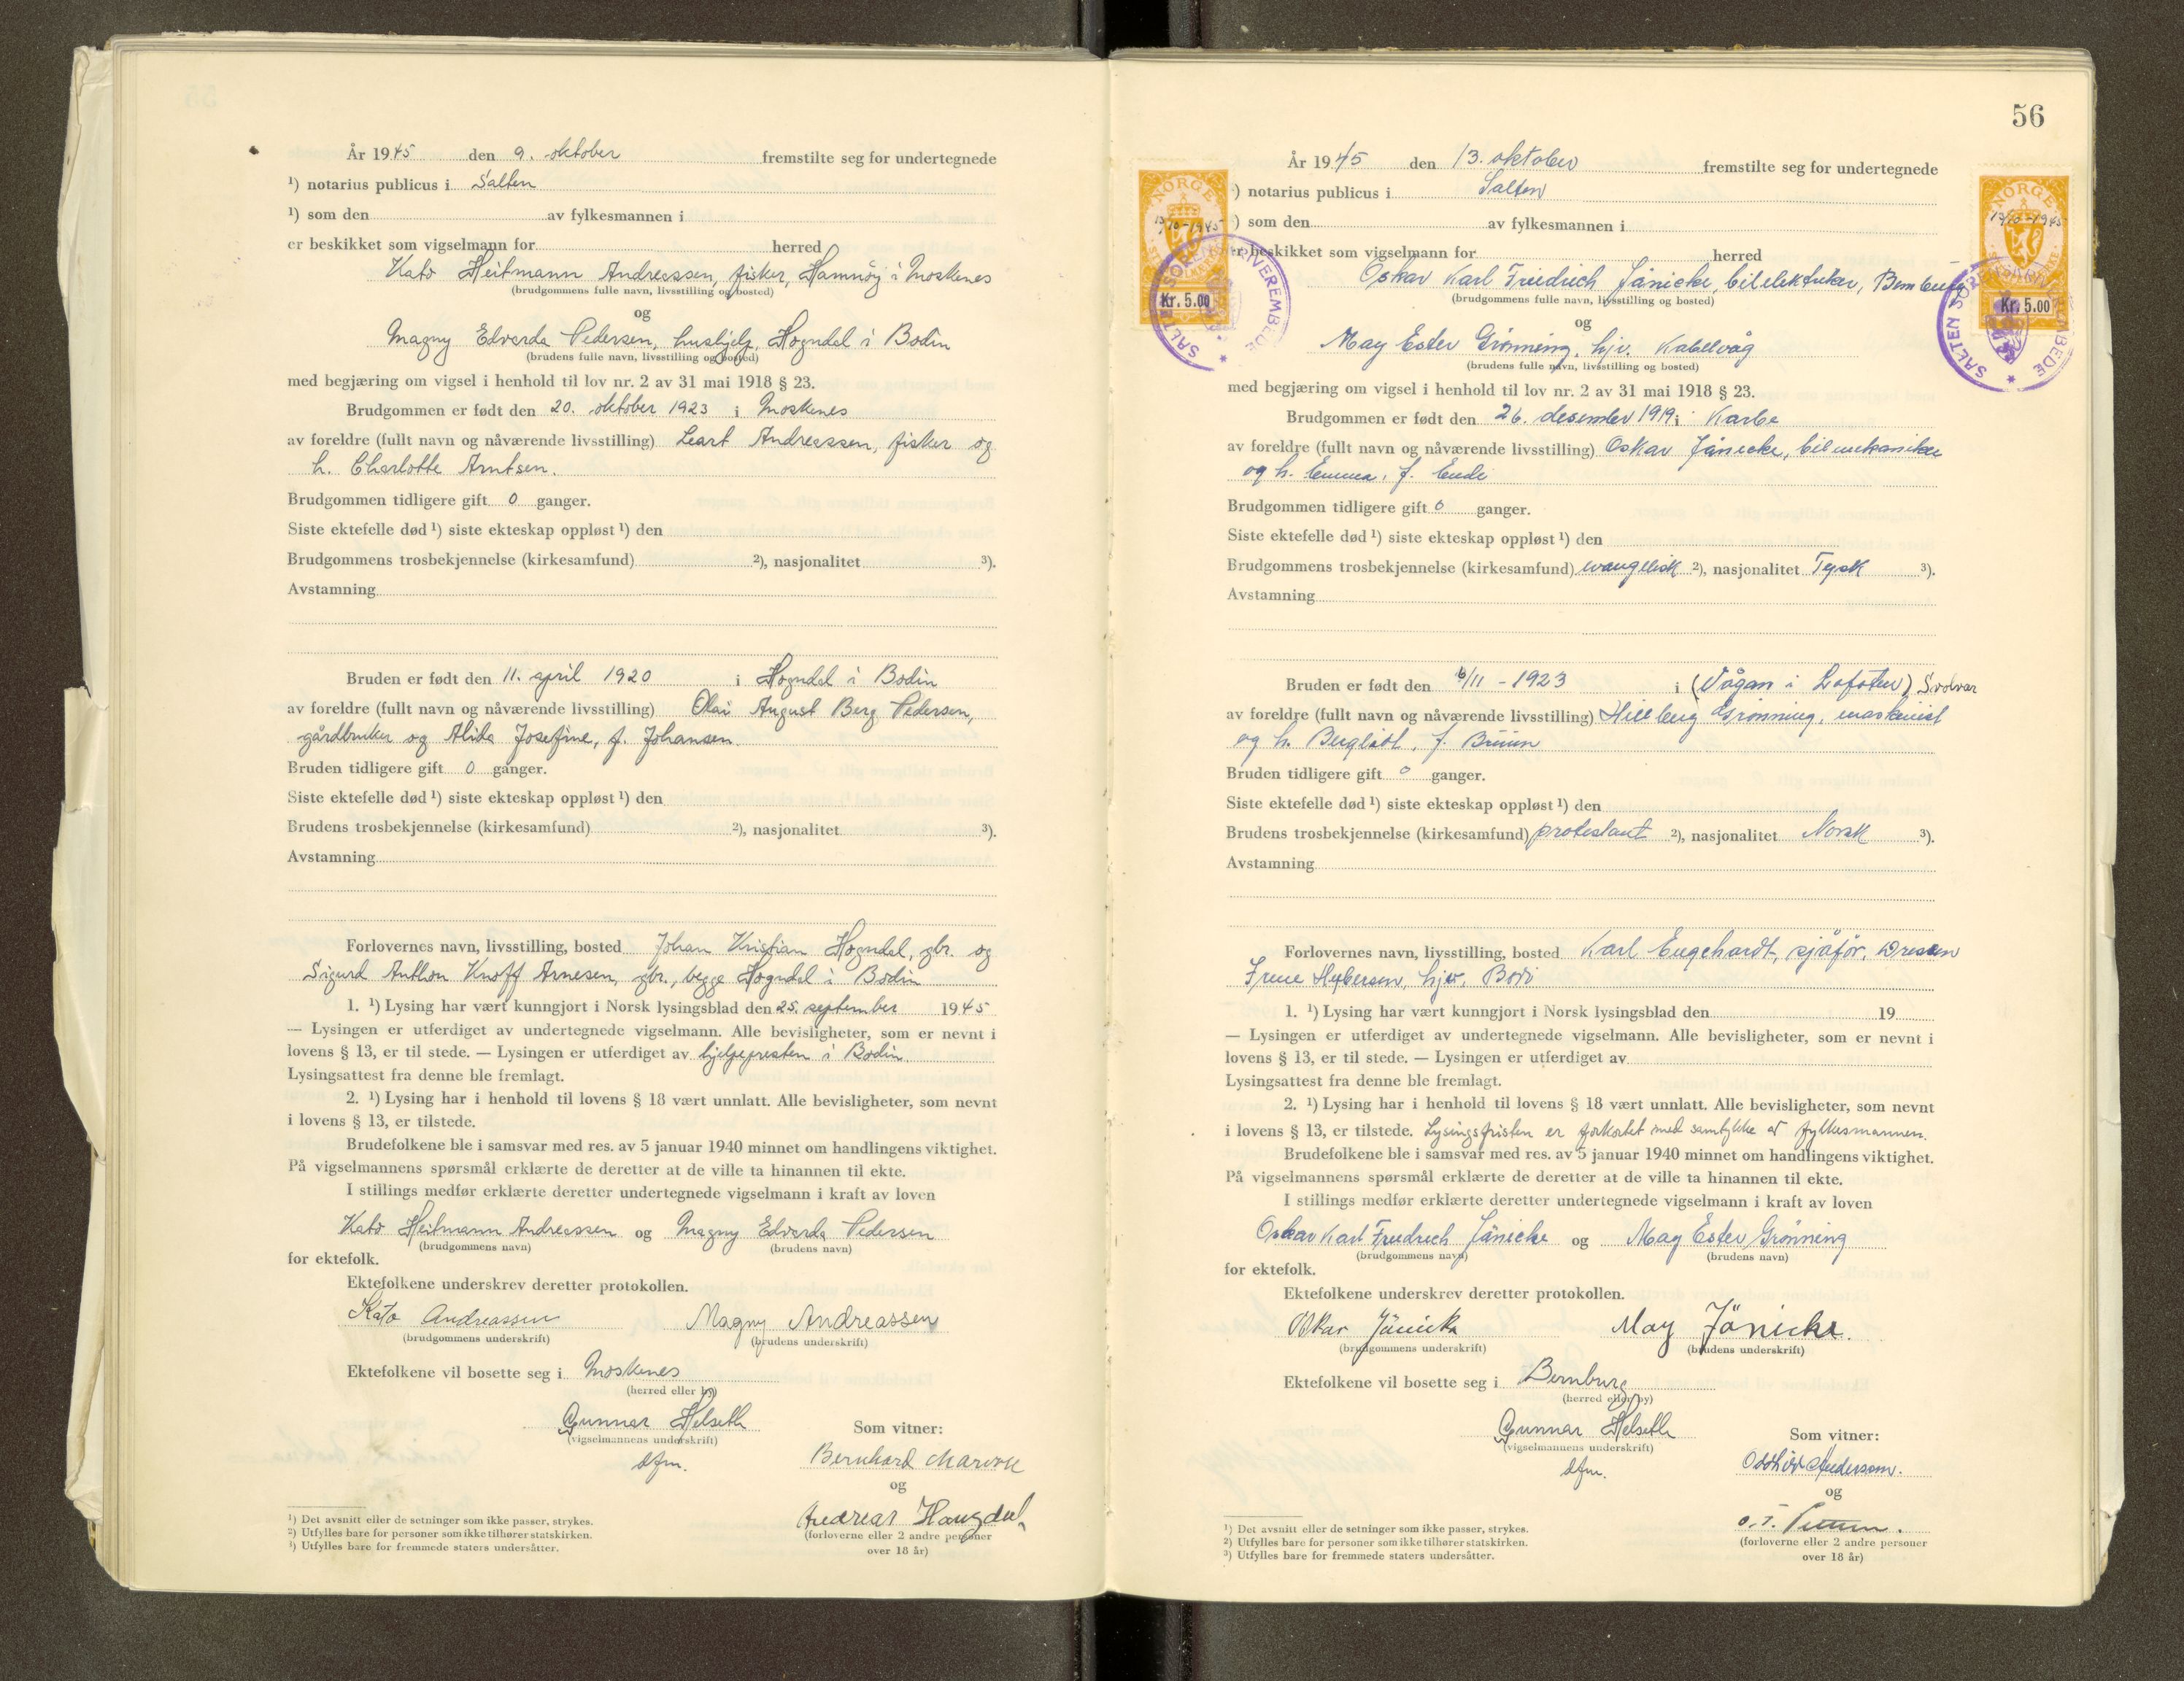 År 1945 den 9. oktober fremstilte seg for undertegnede
¹) notarius publicus i Salten
¹) som den av fylkesmannen i
er beskikket som vigselmann for herred
Kato Heitmann Andreassen, fisker, Hamnøy i Moskenes
(brudgommens fulle navn, livsstilling og bosted)
og
Magny Edvarda Pedersen, hushjelp, Høgndal i Bodin
(brudens fulle navn, livsstilling og bosted)
med begjæring om vigsel i henhold til lov nr. 2 av 31 mai 1918 § 23.
Brudgommen er født den 20. oktober 1923 i Moskenes
av foreldre (fullt navn og nåværende livsstilling) Leart Andreassen, fisker og
h. Charlotte Arntsen.
Brudgommen tidligere gift 0 ganger.
Siste ektefelle død ¹) siste ekteskap oppløst ¹) den
Brudgommens trosbekjennelse (kirkesamfund) ²), nasjonalitet ³).
Avstamning
Bruden er født den 11. april 1920 i Høgndal i Bodin
av foreldre (fullt navn og nåværende livsstilling) Olai August Berg Pedersen,
gårdbruker og Alida Josefine, f. Johansen.
Bruden tidligere gift 0 ganger.
Siste ektefelle død ¹) siste ekteskap oppløst ¹) den
Brudens trosbekjennelse (kirkesamfund) ²), nasjonalitet ³).
Avstamning
Forlovernes navn, livsstilling, bosted Johan Kristian Høgndal, gbr. og
Sigurd Anthon Knoff Arnesen, gbr., begge Høgndal i Bodin
1. ¹) Lysing har vært kunngjort i Norsk lysingsblad den 25. september 1945
— Lysingen er utferdiget av undertegnede vigselmann. Alle bevisligheter, som er nevnt i
lovens § 13, er til stede. — Lysingen er utferdiget av hjelpepresten i Bodin.
Lysingsattest fra denne ble fremlagt.
2. ¹) Lysing har i henhold til lovens § 18 vært unnlatt. Alle bevisligheter, som nevnt
i lovens § 13, er tilstede.
Brudefolkene ble i samsvar med res. av 5 januar 1940 minnet om handlingens viktighet.
På vigselmannens spørsmål erklærte de deretter at de ville ta hinannen til ekte.
I stillings medfør erklærte deretter undertegnede vigselmann i kraft av loven
Kato Heitmann Andreassen og Magny Edvarda Pedersen
(brudgommens navn) (brudens navn)
for ektefolk.
Ektefolkene underskrev deretter protokollen.
Kato Andreassen Magny Andreassen
(brudgommens underskrift) (brudens underskrift)
Ektefolkene vil bosette seg i Moskenes
(herred eller by)
Gunnar Helseth
(vigselmannens underskrift)
dfm.
Som vitner:
Bernhard
og
Andreas Haugdal
(forloverne eller 2 andre personer
over 18 år)
¹) Det avsnitt eller de setninger som ikke passer, strykes.
²) Utfylles bare for personer som ikke tilhører statskirken.
³) Utfylles bare for fremmede staters undersåtter.
56
År 1945 den 13. oktober fremstilte seg for undertegnede
¹) notarius publicus i Salten
¹) som den av fylkesmannen i
er beskikket som vigselmann for herred
Oskar Karl Friedrich Jänicke, bilelektriker, Bernburg
(brudgommens fulle navn, livsstilling og bosted)
og
May Ester Grønning, hjv. Kabelvåg
(brudens fulle navn, livsstilling og bosted)
med begjæring om vigsel i henhold til lov nr. 2 av 31 mai 1918 § 23.
Brudgommen er født den 26. desember 1919 i Karbe
av foreldre (fullt navn og nåværende livsstilling) Oskar Jänicke, bilmekaniker
og h. Emma, f. Ende
Brudgommen tidligere gift 0 ganger.
Siste ektefelle død ¹) siste ekteskap oppløst ¹) den
Brudgommens trosbekjennelse (kirkesamfund) evangelisk ²), nasjonalitet Tysk ³).
Avstamning
Bruden er født den 6/11 - 1923 i (Vågan i Lofoten) Svolvær
av foreldre (fullt navn og nåværende livsstilling) Hilberg Grønning, maskinist
og h. Bergliot, f. Bruun
Bruden tidligere gift 0 ganger.
Siste ektefelle død ¹) siste ekteskap oppløst ¹) den
Brudens trosbekjennelse (kirkesamfund) protestant ²), nasjonalitet Norsk ³).
Avstamning
Forlovernes navn, livsstilling, bosted Karl Engehardt, sjåfør, Dresden
Irene Hybersen, hjv. Bodø
1. ¹) Lysing har vært kunngjort i Norsk lysingsblad den 19
— Lysingen er utferdiget av undertegnede vigselmann. Alle bevisligheter, som er nevnt i
lovens § 13, er til stede. — Lysingen er utferdiget av
Lysingsattest fra denne ble fremlagt.
2. ¹) Lysing har i henhold til lovens § 18 vært unnlatt. Alle bevisligheter, som nevnt
i lovens § 13, er tilstede. Lysingsfristen er forkortet med samtykke av fylkesmannen.
Brudefolkene ble i samsvar med res. av 5 januar 1940 minnet om handlingens viktighet.
På vigselmannens spørsmål erklærte de deretter at de ville ta hinannen til ekte.
I stillings medfør erklærte deretter undertegnede vigselmann i kraft av loven
Oskar Karl Friedrich Jänicke og May Ester Grønning
(brudgommens navn) (brudens navn)
for ektefolk.
Ektefolkene underskrev deretter protokollen.
Oskar Jänicke May Jänicke.
(brudgommens underskrift) (brudens underskrift)
Ektefolkene vil bosette seg i Bernburg
(herred eller by)
Gunnar Helseth
(vigselmannens underskrift)
dfm.
Som vitner:
Oddlid Andersson.
og
(forloverne eller 2 andre personer
over 18 år)
¹) Det avsnitt eller de setninger som ikke passer, strykes.
²) Utfylles bare for personer som ikke tilhører statskirken.
³) Utfylles bare for fremmede staters undersåtter.
NORGE
13/10-1945
Kr. 5.00
SALTEN SORENSKRIVEREMBEDE
NORGE
13/10-1945
Kr. 5.00
SALTEN SORENSKRIVEREMBEDE